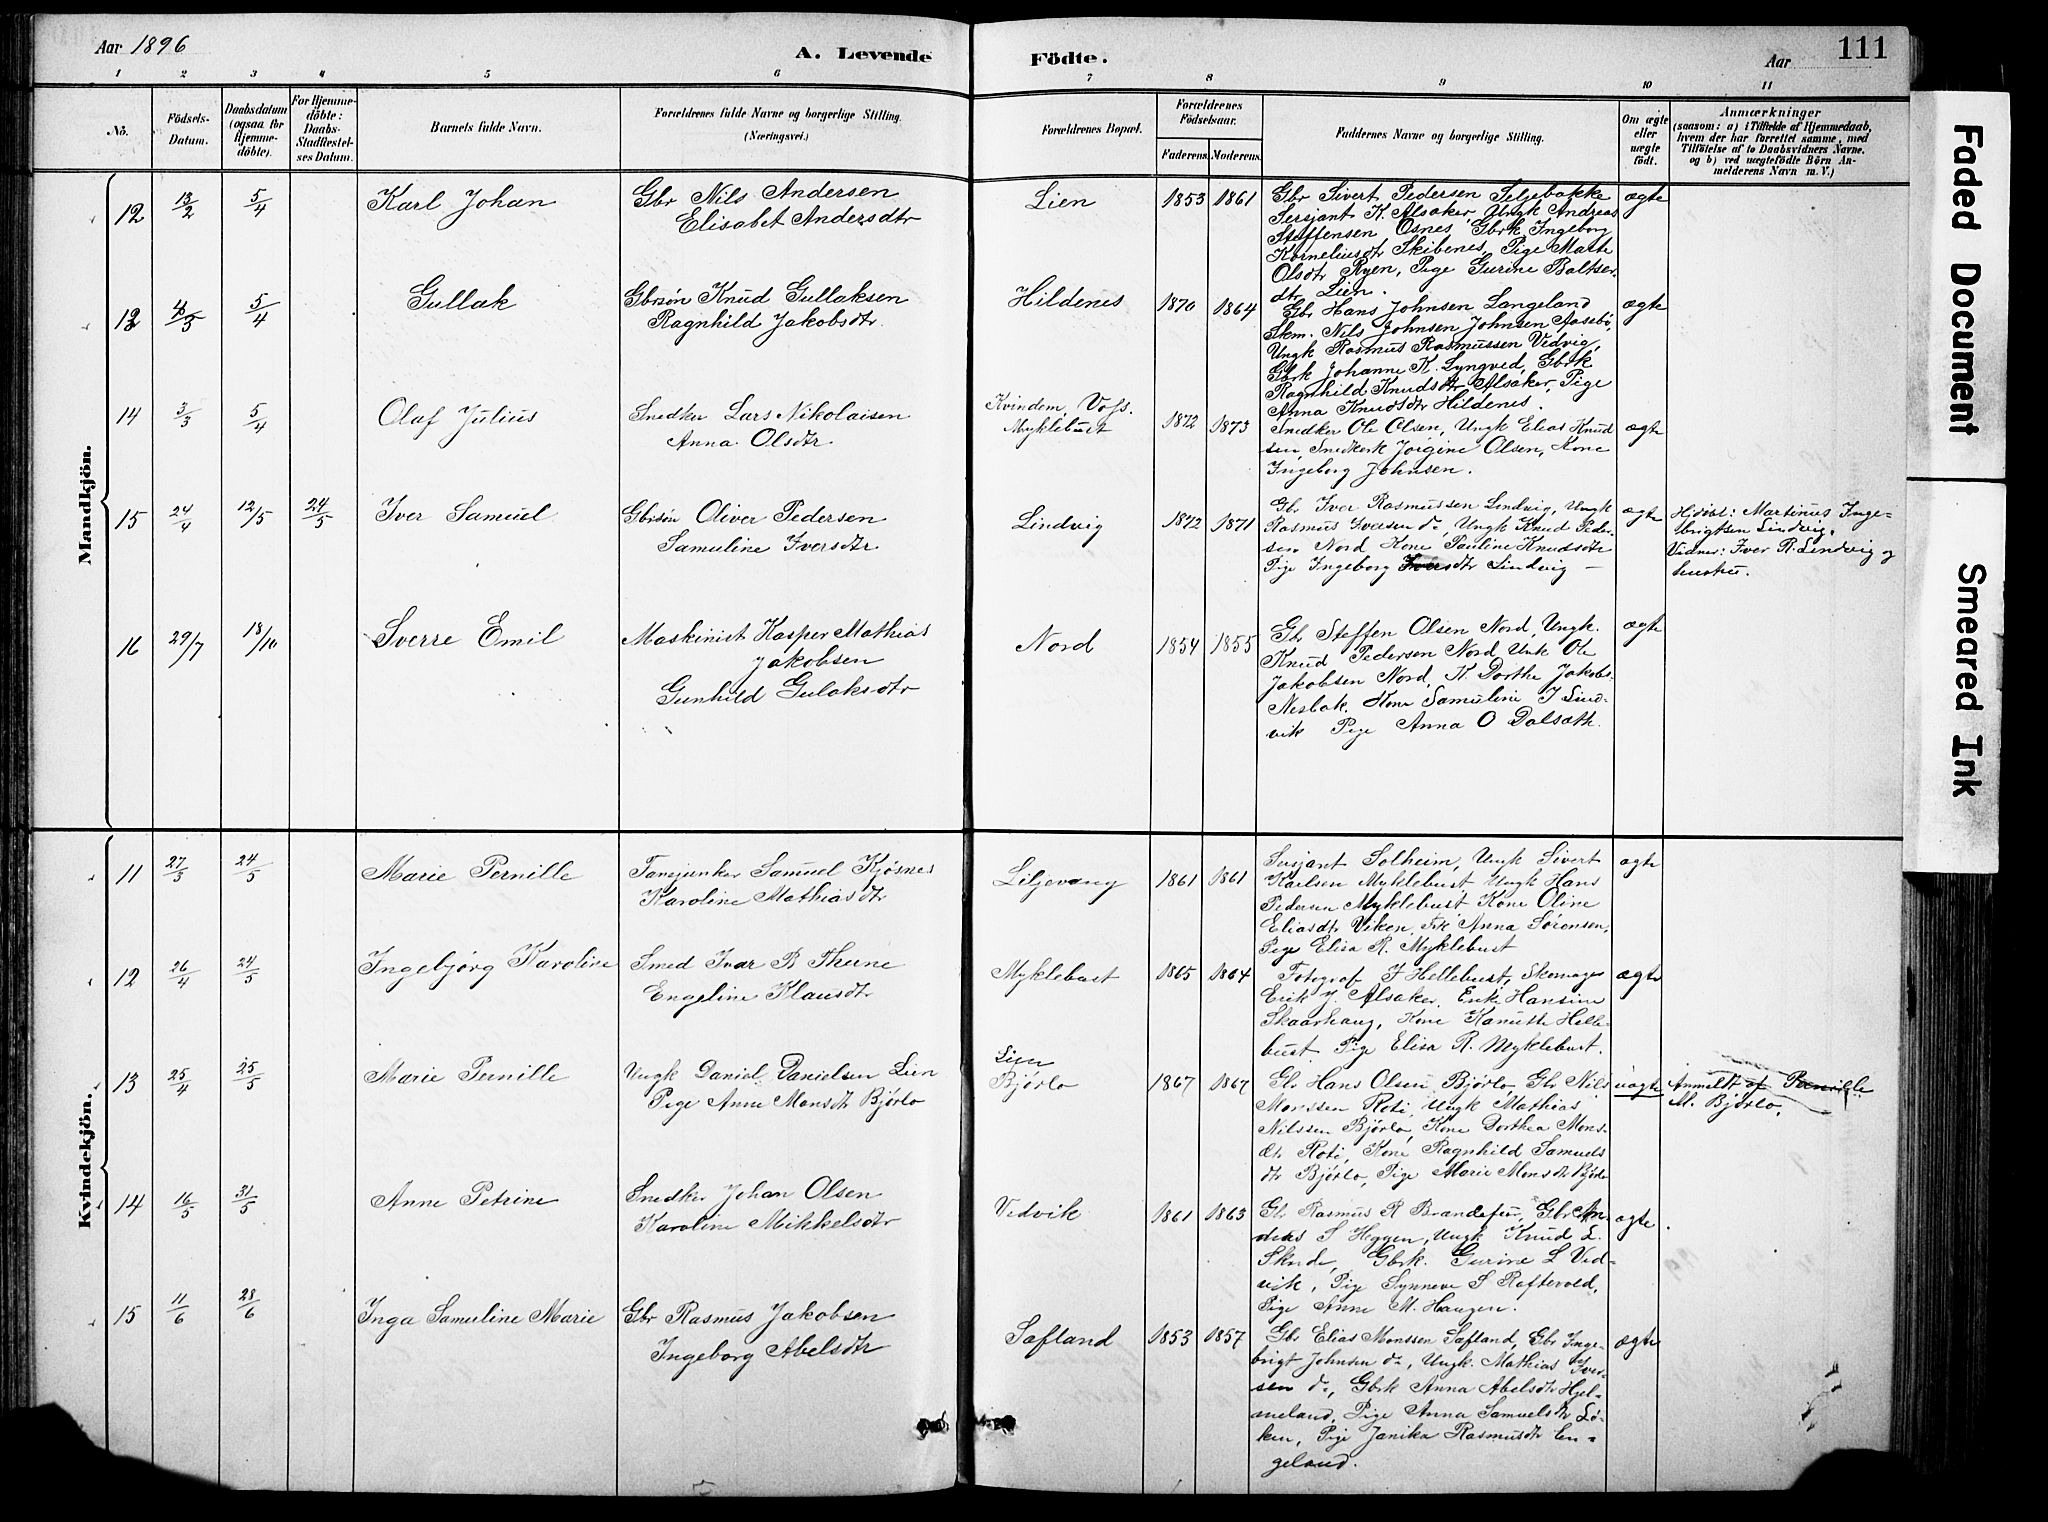 Aar 1896
A. Levende
Födte.
Aar
111
1 2 3 4 5 6 7 8 9 10 11
No.
Födsels-
Datum.
Daabsdatum
(ogsaa for
Hjemme-
döbte).
For Hjemme-
döbte:
Daabs-
Stadfæstel-
ses Datum.
Barnets fulde Navn.
Forældrenes fulde Navne og borgerlige Stilling.
(Næringsvei.)
Forældrenes Bopæl.
Forældrenes
Födselsaar.
Faderens. Moderens.
Faddernes Navne og borgerlige Stilling.
Om ægte
eller
uægte
født.
Anmærkninger
(saasom: a) i Tilfælde af Hjemmedaab,
hvem der har forrettet samme, med
Tilföielse af to Daabsvidners Navne,
og b) ved uægtefödte Börn An-
melderens Navn m. V.)
Mandkjön.
12 13/2 5/4 Karl Johan
Gbr Nils Andersen
Elisabet Andersdtr
Lien 1853 1861
Gbr Sivert Pedersen Seljebakke
Sersjant K. Alsaker, Ungk Andreas
Steffensen Osnes, Gbrk Ingeborg
Korneliusdtr Skibenes, Pige Marte
Olsdtr Ryen, Pige Gurine Baltser-
dtr Lien.
ægte
13 5/4 Gullak
Gbrsøn Knud Gullaksen
Ragnhild Jakobsdtr.
Hildenes 1870 1864
Gbr Hans Johnsen Langeland
Skm. Nils Johnsen Johnsen Aasebö,
Ungk Rasmus Rasmussen Vedvig,
Gbrk Johanne K. Lyngved, Gbrk
Ragnhild Knudsdtr Alsaker, Pige
Anna Knudsdtr Hildenes.
ægte
14 3/3 5/4 Olaf Julius
Snedker Lars Nikolaisen
Anna Olsdtr
Kvindem, Voss.
Myklebust
1872 1873
Snedker Ole Olsen, Ungk Elias Knud
sen, Snedkerk Jorgine Olsen, Kone
Ingeborg Johnsen.
ægte
15 24/4 12/5 24/5 Iver Samuel
Gbrsön Oliver Pedersen
Samuline Iversdtr
Lindvig 1872 1871
Gbr Iver Rasmussen Lindvig, Ungk
Rasmus Iversen do, Ungk Knud Peder-
sen Nord Kone Pauline Knudsdtr
Pige Ingeborg Iversdtr Lindvig —
ægte
Hjdøbt: Martinus Inge-
brigtsen Lindvig.
Vidner: Iver R. Lindvig og
hustru.
16 29/7 18/10 Sverre Emil
Maskinist Kasper Mathias
Jakobsen
Gunhild Gulaksdtr
Nord 1854 1855
Gbr Steffen Olsen Nord, Ungk.
Knud Pedersen Nord Unk Ole
Jakobsen Nord, K. Dorthe Jakobs.
Nesbak. Kone Samuline I Lind-
vik Pige Anna O Dalsæth.
ægte
Kvindekjön.
11 27/3 24/5 Marie Pernille
Fanejunker Samuel Kjøsnes
Karoline Mathiasdtr
Liljevang 1861 1861
Sersjant Solheim, Ungk Sivert
Karlsen Myklebust, Ungk Hans
Pedersen Myklebust Kone Oline
Eliasdtr Viken, Frk Anna Sörensen,
Pige Elisa R. Myklebust
ægte
12 26/4 24/5 Ingebjørg Karoline
Smed Ivar R Thune
Engeline Klausdtr
Myklebust 1865 1864
Fotograf J Hellebust, Skomager
Erik J. Alsaker. Enke Hansine
Skaarhaug, Kone Kanutte Helle-
bust. Pige Elisa R. Myklebust.
ægte
13 25/4 25/5 Marie Pernille
Ungk Daniel Danielsen Lien
Pige Anne Monsdtr Bjørlo
Lien
Bjørlo
1867 1867
Gbr Hans Olsen Bjørlo, Gbr Nils
Monssen Roti, Ungk Mathias
Nilssen Bjørlo, Kone Dorthea Mons-
dtr Roti, Kone Ragnhild Samuels
dtr Bjørlo, Pige Marie Monsdtr Bjørlo
uægte
Anmeldt af Pernille
M. Bjørlo.
14 16/5 31/5 Anne Petrine
Snedker Johan Olsen
Karoline Mikkelsdtr
Vedvik 1861 1863
Gbr Rasmus R Brandefur, Gbr An
dreas S Heggen, Ungk Knud L.
Skude, Gbrk. Gurine L Ved-
vik, Pige Synneve S Raftevold,
Pige Anne M. Haugen.
ægte
15 11/6 28/6 Inga Samuline Marie
Gbr Rasmus Jakobsen
Ingeborg Abelsdtr
Safland 1853 1857
Gbr Elias Monssen Safland, Gbr Inge-
brigt Johnsen do, Ungk. Mathias Iver-
sen do, Gbrk Anna Abelsdtr Hjel-
meland, Pige Anna Samuelsdtr Lø-
ken, Pige Janika Rasmusdtr Len-
geland.
ægte
Faded Document
Smeared Ink